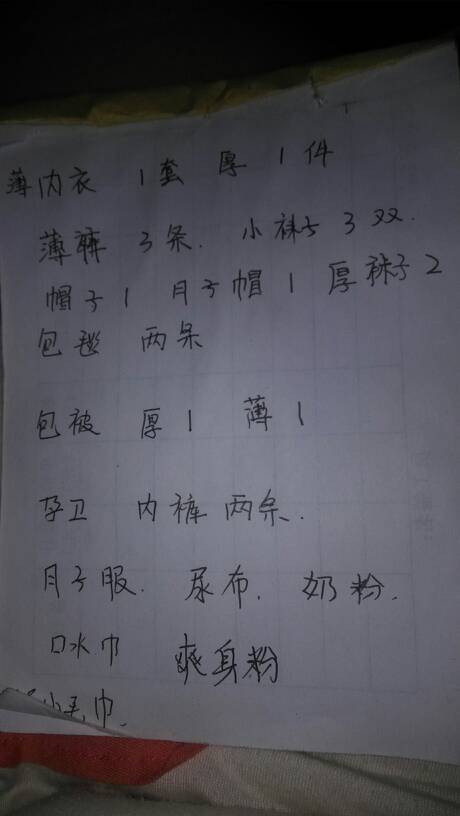 薄内衣 1套 厚 1件
薄裤 3条. 小袜子3双.
帽子1 月子帽 1 厚袜子2
包毯 两条
包被 厚1 薄1
孕卫 内裤 两条.
月子服. 尿布. 奶粉.
口水巾 爽身粉
小毛巾.